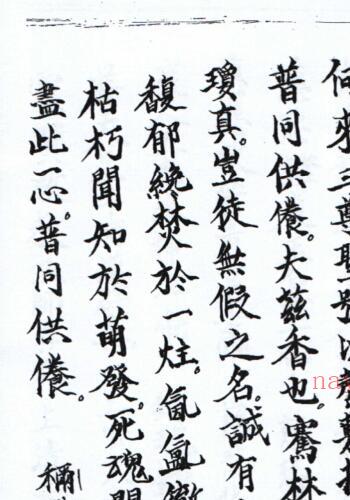 何來三尊聖號
普同供養。夫茲香也。騫林
瓊真。豈徒無假之名。誠有
馥郁纔焚於一炷。氤氳
枯朽聞知於萌發。死魂
盡此一心。普同供養。
稱